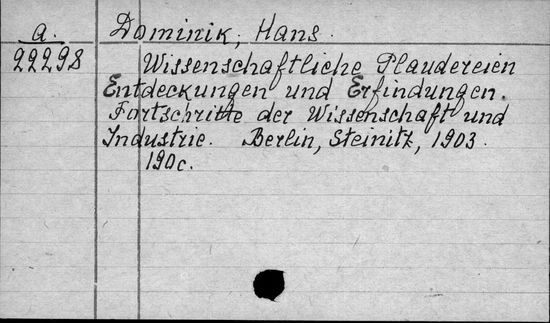 a. Dominik, Hans.
22298 Wissenschaftliche Plaudereien
Entdeckungen und Erfindungen.
Fortschritte der Wissenschaft und
Industrie. Berlin, Steinitz, 1903.
190c.